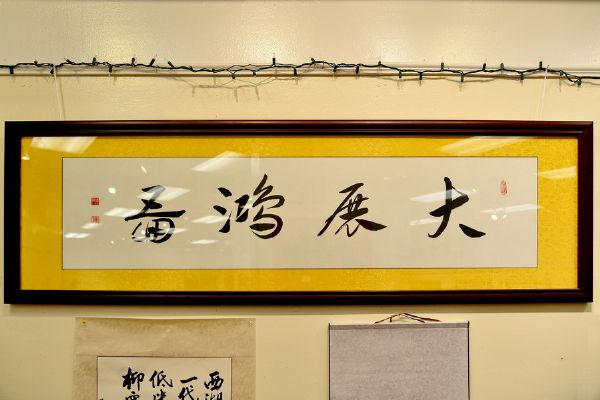 大展鴻圖
西湖
一代
低
柳